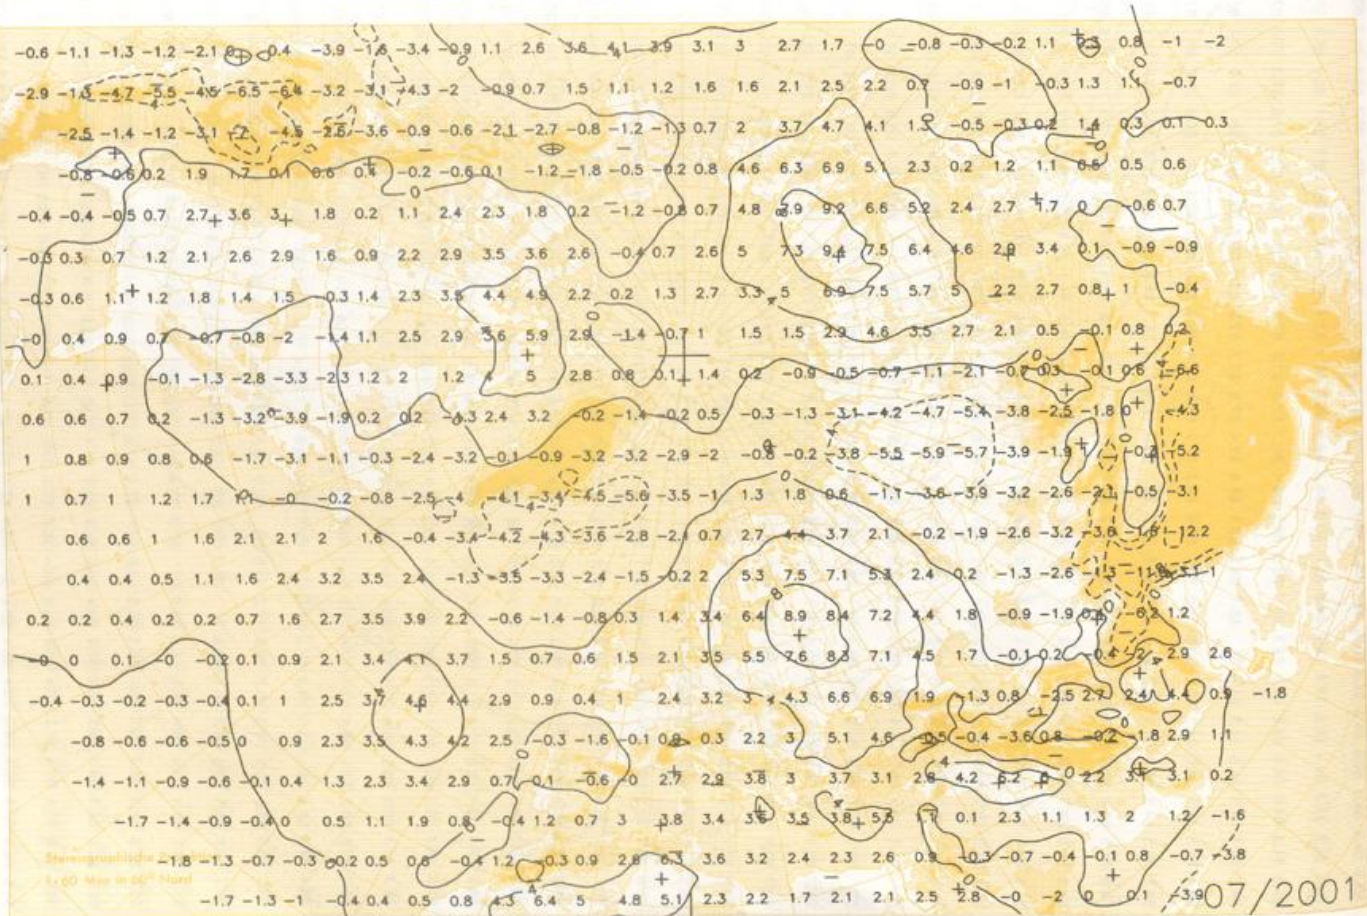 -0.6 -1.1 -1.3 -1.2 -2.1 0.4 -3.9 -1.6 -3.4 -0.9 1.1 2.6 3.6 4.1 3.9 3.1 3 2.7 1.7 -0 -0.8 -0.3 -0.2 1.1 0.8 -1 -2
-2.9 -1.3 -4.7 -5.5 -4.5 -6.5 -6.4 -3.2 -3.1 -4.3 -2 -0.9 0.7 1.5 1.1 1.2 1.6 1.6 2.1 2.5 2.2 0.7 -0.9 -1 -0.3 1.3 1.1 -0.7
-2.5 -1.4 -1.2 -3.1 -7. -4.5 -2.6 -3.6 -0.9 -0.6 -2.1 -2.7 -0.8 -1.2 -1.3 0.7 2 3.7 4.7 4.1 1.3 -0.5 -0.3 0.2 1.4 0.3 0.1 0.3
-0.8 -0.6 0.2 1.9 1.7 0.1 0.6 0.4 -0.2 -0.6 0.1 -1.2 -1.8 -0.5 -0.2 0.8 4.6 6.3 6.9 5.1 2.3 0.2 1.2 1.1 0.6 0.5 0.6
-0.4 -0.4 -0.5 0.7 2.7 3.6 3 1.8 0.2 1.1 2.4 2.3 1.8 0.2 -1.2 -0.8 0.7 4.8 7.9 9.2 6.6 5.2 2.4 2.7 1.7 0 -0.6 0.7
-0.3 0.3 0.7 1.2 2.1 2.6 2.9 1.6 0.9 2.2 2.9 3.5 3.6 2.6 -0.4 0.7 2.6 5 7.3 9.4 7.5 6.4 4.6 2.9 3.4 0.1 -0.9 -0.9
-0.3 0.6 1.1 1.2 1.8 1.4 1.5 -0.3 1.4 2.3 3.5 4.4 4.9 2.2 0.2 1.3 2.7 3.3 5 6.9 7.5 5.7 5 2.2 2.7 0.8 1 -0.4
-0 0.4 0.9 0.7 -0.7 -0.8 -2 -1.4 1.1 2.5 2.9 3.6 5.9 2.9 -1.4 -0.7 1 1.5 1.5 2.9 4.6 3.5 2.7 2.1 0.5 -0.1 0.8 0.2
0.1 0.4 0.9 -0.1 -1.3 -2.8 -3.3 -2.3 1.2 2 1.2 4 5 2.8 0.8 0.1 1.4 0.2 -0.9 -0.5 -0.7 -1.1 -2.1 -0.7 0.3 -0.1 0.6 -6.6
0.6 0.6 0.7 0.2 -1.3 -3.2 -3.9 -1.9 0.2 0.2 -4.3 2.4 3.2 -0.2 -1.4 -0.2 0.5 -0.3 -1.3 -3.1 -4.2 -4.7 -5.4 -3.8 -2.5 -1.8 0 -4.3
1 0.8 0.9 0.8 0.6 -1.7 -3.1 -1.1 -0.3 -2.4 -3.2 -0.1 -0.9 -3.2 -3.2 -2.9 -2 -0.8 -0.2 -3.8 -5.5 -5.9 -5.7 -3.9 -1.9 -0.3 -5.2
1 0.7 1 1.2 1.7 1.1 -0 -0.2 -0.8 -2.5 -4 -4.1 -3.4 -4.5 -5.6 -3.5 -1 1.3 1.8 0.6 -1.1 -3.6 -3.9 -3.2 -2.6 -2.1 -0.5 -3.1
0.6 0.6 1 1.6 2.1 2.1 2 1.6 -0.4 -3.4 -4.2 -4.3 -3.6 -2.8 -2.1 0.7 2.7 4.4 3.7 2.1 -0.2 -1.9 -2.6 -3.2 -3.6 -1.6 -12.2
0.4 0.4 0.5 1.1 1.6 2.4 3.2 3.5 2.4 -1.3 -3.5 -3.3 -2.4 -1.5 -0.2 2 5.3 7.5 7.1 5.3 2.4 0.2 -1.3 -2.6 -1.3 -3.1 -1
0.2 0.2 0.4 0.2 0.2 0.7 1.6 2.7 3.5 3.9 2.2 -0.6 -1.4 -0.8 0.3 1.4 3.4 6.4 8.9 8.4 7.2 4.4 1.8 -0.9 -1.9 -6.2 1.2
-0 0 0.1 -0 -0.2 0.1 0.9 2.1 3.4 4.1 3.7 1.5 0.7 0.6 1.5 2.1 3.5 5.5 7.6 8.3 7.1 4.5 1.7 -0.1 0.2 -0.4 -2 2.9 2.6
-0.4 -0.3 -0.2 -0.3 -0.4 0.1 1 2.5 3.7 4.6 4.4 2.9 0.9 0.4 1 2.4 3.2 3 4.3 6.6 6.9 1.9 -1.3 0.8 -2.5 2.7 2.4 4.4 0.9 -1.8
-0.8 -0.6 -0.6 -0.5 0 0.9 2.3 3.5 4.3 4.2 2.5 -0.3 -1.6 -0.1 0.9 0.3 2.2 3 5.1 4.6 -0.5 -0.4 -3.6 0.8 -0.2 -1.8 2.9 1.1
-1.4 -1.1 -0.9 -0.6 -0.1 0.4 1.3 2.3 3.4 2.9 0.7 0.1 -0.6 -0 2.7 2.9 3.8 3 3.7 3.1 2.8 4.2 5.2 6 2.2 3.1 3.1 0.2
-1.7 -1.4 -0.9 -0.4 0 0.5 1.1 1.9 0.8 -0.4 1.2 0.7 3 3.8 3.4 3.6 3.5 3.8 5.5 1.1 0.1 2.3 1.1 1.3 2 1.2 -1.6
Stereographische
-1.8 -1.3 -0.7 -0.3 -0.2 0.5 0.6 -0.4 1.2 -0.3 0.9 2.8 6.3 3.6 3.2 2.4 2.3 2.6 0.9 -0.3 -0.7 -0.4 -0.1 0.8 -0.7 -3.8
1:60 Mio in 60° Nord
-1.7 -1.3 -1 -0.4 0.4 0.5 0.8 4.3 6.4 5 4.8 5.1 2.3 2.2 1.7 2.1 2.1 2.5 2.8 -0 -2 0 0.1 -3.9
07/2001